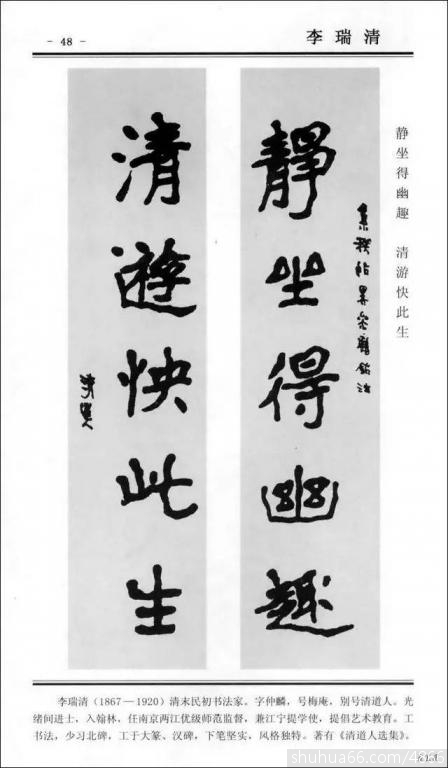 - 48 -
李瑞清
静坐得幽趣 清游快此生
靜坐得幽趣
清遊快此生
清道人
李瑞清（1867—1920）清末民初书法家。字仲麟，号梅庵，别号清道人。光
绪间进士，入翰林，任南京两江优级师范监督，兼江宁提学使，提倡艺术教育。工
书法，少习北碑，工于大篆、汉碑，下笔坚实，风格独特。著有《清道人选集》。